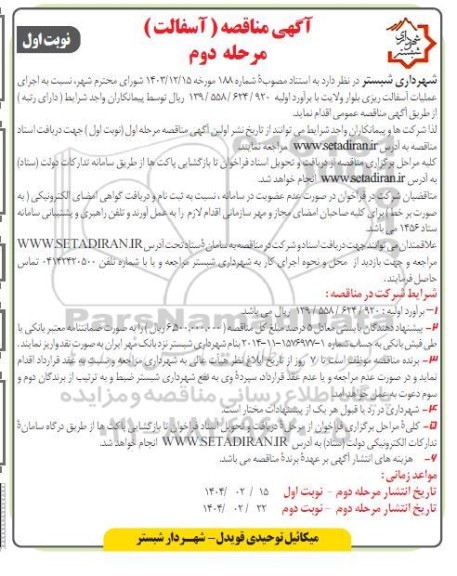 آگهی مناقصه ( آسفالت )
مرحله دوم
نوبت اول
شهرداری شبستر
شهرداری شبستر در نظر دارد به استناد مصوبهٔ شماره ۱۸۸ مورخه ۱۴۰۳/۱۲/۱۵ شورای محترم شهر، نسبت به اجرای
عملیات آسفالت ریزی بلوار ولایت با برآورد اولیه ۹۲۰ / ۶۲۴ / ۵۵۸ / ۱۳۹ ریال توسط پیمانکاران واجد شرایط ( دارای رتبه )
از طریق آگهی مناقصه عمومی اقدام نماید.
لذا شرکت ها و پیمانکاران واجد شرایط می توانند از تاریخ نشر اولین آگهی مناقصه مرحله اول (نوبت اول ) جهت دریافت اسناد
مناقصه به آدرس www.setadiran.ir مراجعه نمایند.
کلیه مراحل برگزاری مناقصه از دریافت و تحویل اسناد فراخوان تا بازگشایی پاکت ها از طریق سامانه تدارکات دولت (ستاد)
به آدرس www.setadiran.ir انجام خواهد شد.
مناقصیان شرکت در فراخوان در صورت عدم عضویت در سامانه ، نسبت به ثبت نام و دریافت گواهی امضای الکترونیکی ( به
صورت بر خط ) برای کلیه صاحبان امضای مجاز و مهر سازمانی اقدام لازم را به عمل آورند و تلفن راهبری و پشتیبانی سامانه
ستاد ۱۴۵۶ می باشد.
علاقمندان می توانند جهت دریافت اسناد و شرکت در مناقصه به سامانهٔ ستاد تحت آدرس WWW.SETADIRAN.IR
مراجعه و جهت بازدید از محل و نحوه اجرای کار به شهرداری شبستر مراجعه و یا با شماره تلفن ۰۴۱۴۲۴۲۰۵۰۰ تماس
حاصل فرمایند.
شرایط شرکت در مناقصه :
۱- برآورد اولیه : ۹۲۰ / ۶۲۴ / ۵۵۸ / ۱۳۹ ریال می باشد.
۲- پیشنهاد دهندگان بایستی معادل ۵ درصد مبلغ کل مناقصه ( ۶.۵۰۰.۰۰۰.۰۰۰ ریال ) را به صورت ضمانتنامه معتبر بانکی یا
طی فیش بانکی به حساب شماره ۱-۱۵۷۶۹۷۷-۱۱-۲۰۱۴ بنام شهرداری شبستر نزد بانک مهر ایران به صورت نقد واریز نمایند.
۳- برنده مناقصه موظف است تا ۷ روز از تاریخ ابلاغ نظر هیأت عالی به شهرداری مراجعه و نسبت به عقد قرارداد اقدام
نماید و در صورت عدم مراجعه و یا عدم عقد قرارداد، سپردهٔ وی به نفع شهرداری شبستر ضبط و به ترتیب از برندگان دوم و
سوم دعوت به عمل خواهد آمد.
۴- شهرداری در رد یا قبول هر یک از پیشنهادات مختار است.
۵- کلیهٔ مراحل برگزاری فراخوان از مرحلهٔ دریافت و تحویل اسناد فراخوان تا بازگشایی پاکت ها از طریق درگاه سامانهٔ
تدارکات الکترونیکی دولت (ستاد) به آدرس WWW.SETADIRAN.IR انجام خواهد شد.
۶- هزینه های انتشار آگهی بر عهدهٔ برندهٔ مناقصه می باشد.
مواعد زمانی :
تاریخ انتشار مرحله دوم - نوبت اول ۱۵ / ۰۲ / ۱۴۰۴
تاریخ انتشار مرحله دوم - نوبت دوم ۲۲ / ۰۲ / ۱۴۰۴
میکائیل توحیدی قویدل - شهردار شبستر